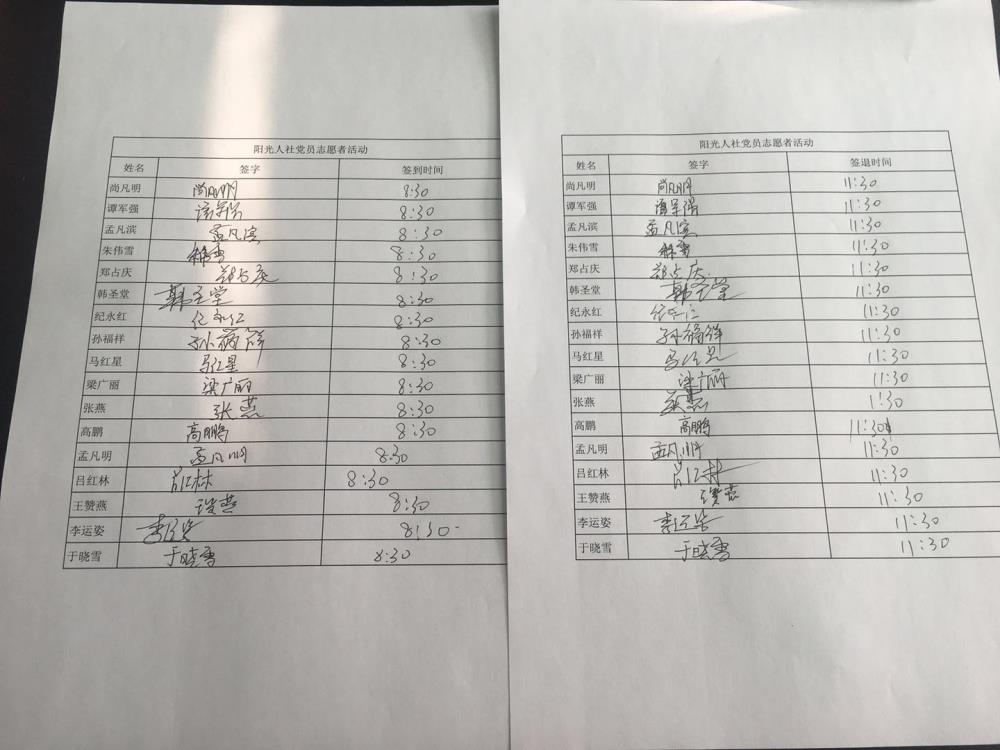 阳光人社党员志愿者活动
姓名 签字 签到时间
尚凡明 尚凡明 8:30
谭军强 谭军强 8:30
孟凡滨 孟凡滨 8:30
朱伟雪 8:30
郑占庆 郑占庆 8:30
韩圣堂 韩圣堂 8:30
纪永红 纪永红 8:30
孙福祥 孙福祥 8:30
马红星 马红星 8:30
梁广丽 梁广丽 8:30
张燕 张燕 8:30
高鹏 高鹏 8:30
孟凡明 孟凡明 8:30
吕红林 吕红林 8:30
王赞燕 赞燕 8:30
李运姿 李运姿 8:30
于晓雪 于晓雪 8:30
阳光人社党员志愿者活动
姓名 签字 签退时间
尚凡明 尚凡明 11:30
谭军强 谭军强 11:30
孟凡滨 孟凡滨 11:30
朱伟雪 11:30
郑占庆 郑占庆 11:30
韩圣堂 韩圣堂 11:30
纪永红 11:30
孙福祥 孙福祥 11:30
马红星 马红星 11:30
梁广丽 梁广丽 11:30
张燕 张燕 1:30
高鹏 高鹏 11:30
孟凡明 孟凡明 11:30
吕红林 吕红林 11:30
王赞燕 赞燕 11:30
李运姿 李运姿 11:30
于晓雪 于晓雪 11:30